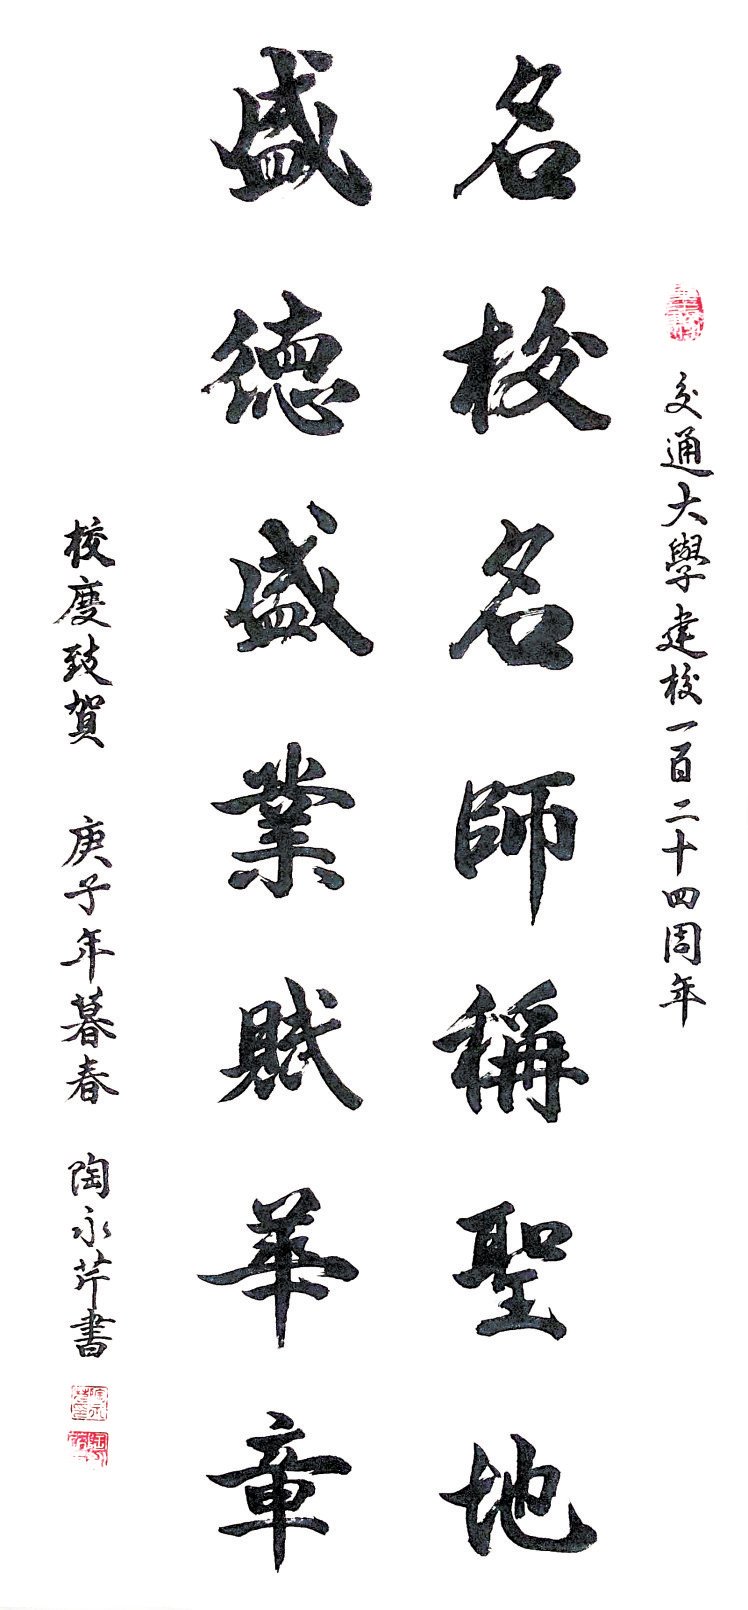 交通大學建校一百二十四周年
名校名師稱聖地
盛德盛業賦華章
校慶致賀 庚子年暮春 陶永芹書